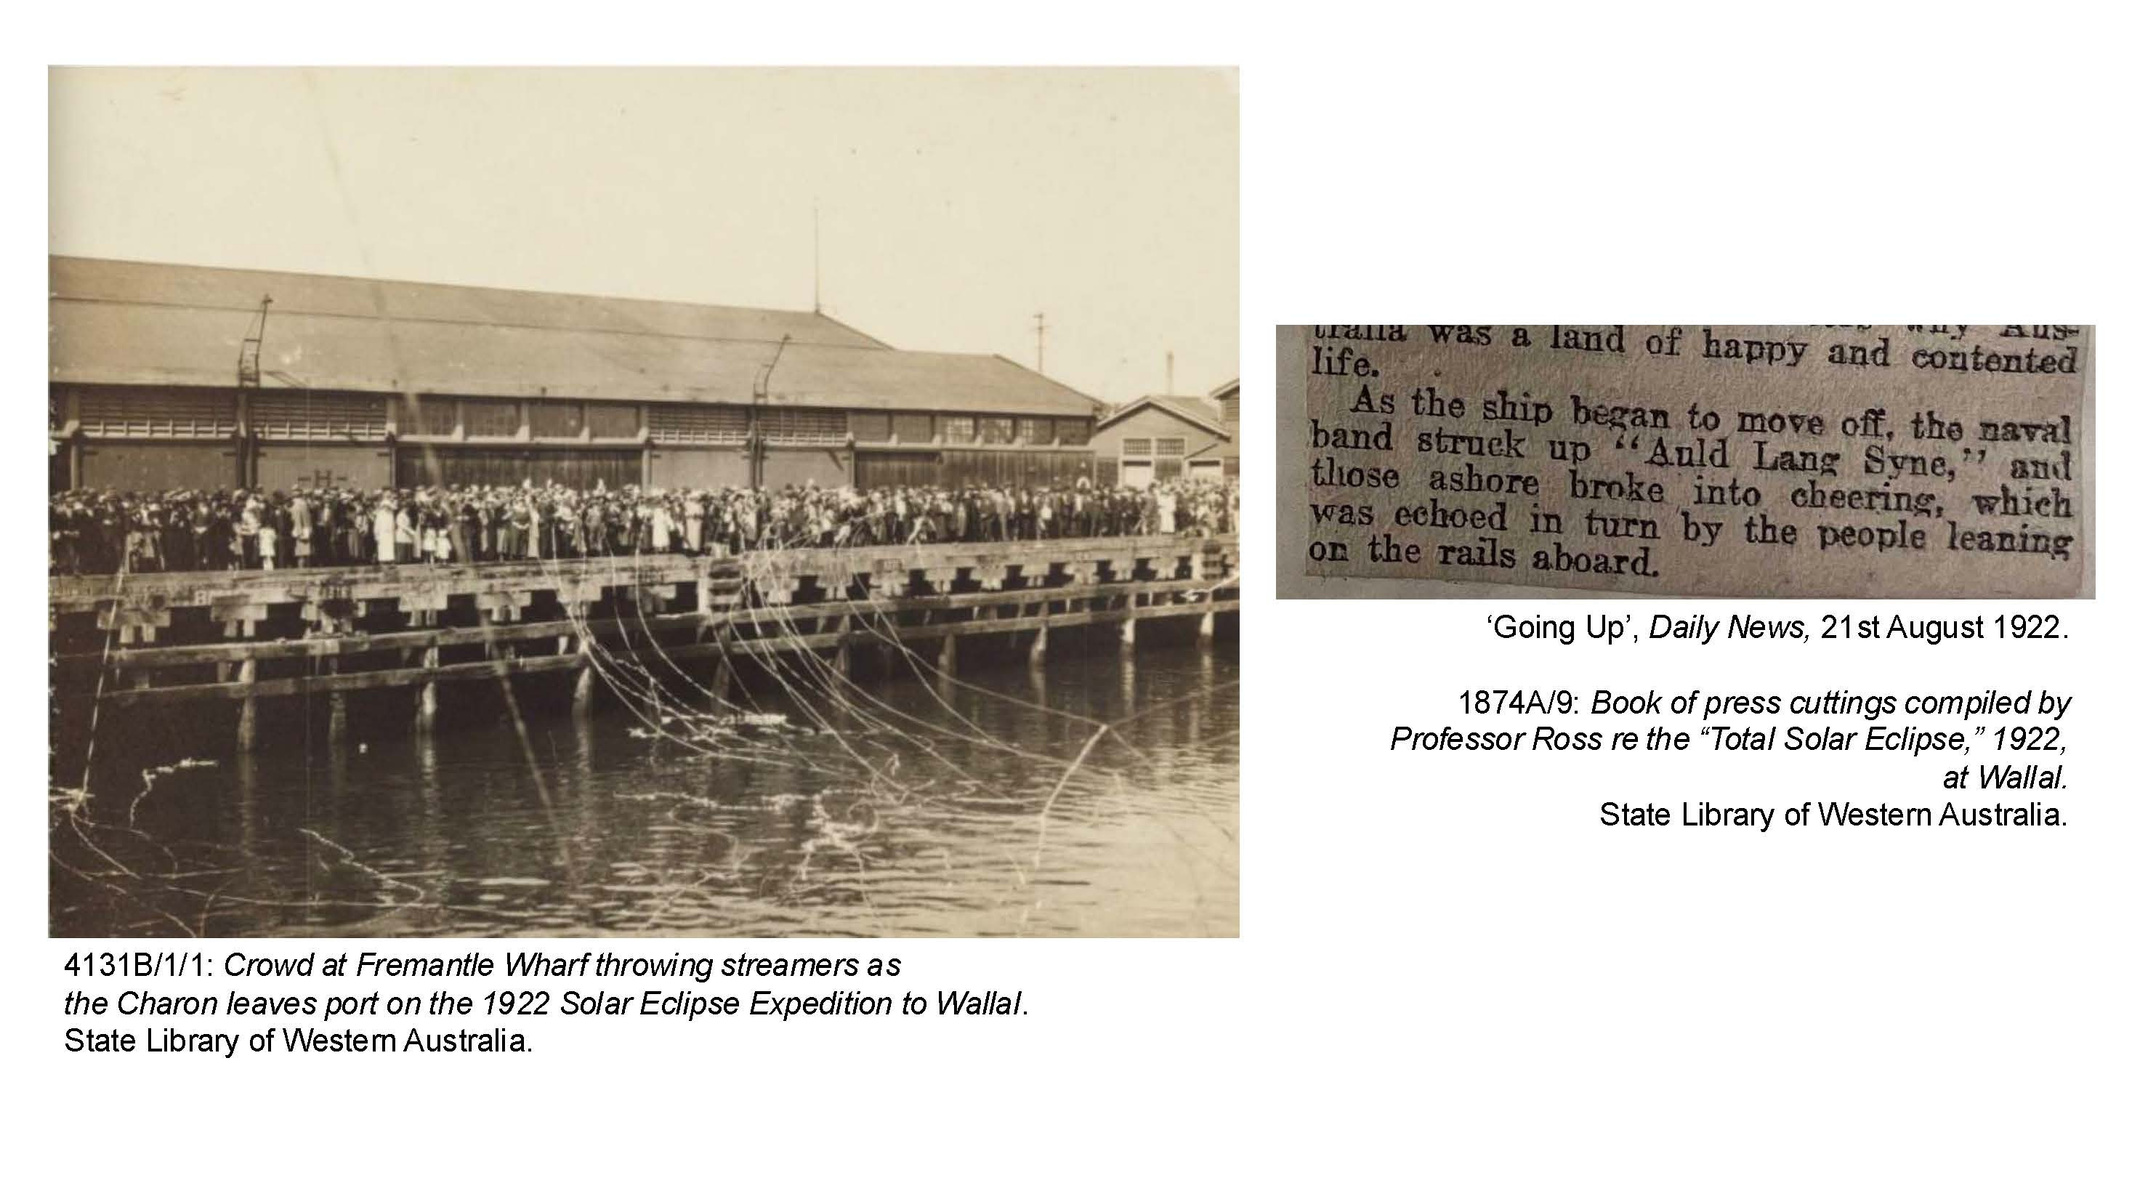 -H-
4131B/1/1: Crowd at Fremantle Wharf throwing streamers as
the Charon leaves port on the 1922 Solar Eclipse Expedition to Wallal.
State Library of Western Australia.
why Aus-
tralia was a land of happy and contented
life.
As the ship began to move off, the naval
band struck up “Auld Lang Syne,” and
those ashore broke into cheering, which
was echoed in turn by the people leaning
on the rails aboard.
‘Going Up’, Daily News, 21st August 1922.
1874A/9: Book of press cuttings compiled by
Professor Ross re the “Total Solar Eclipse,” 1922,
at Wallal.
State Library of Western Australia.